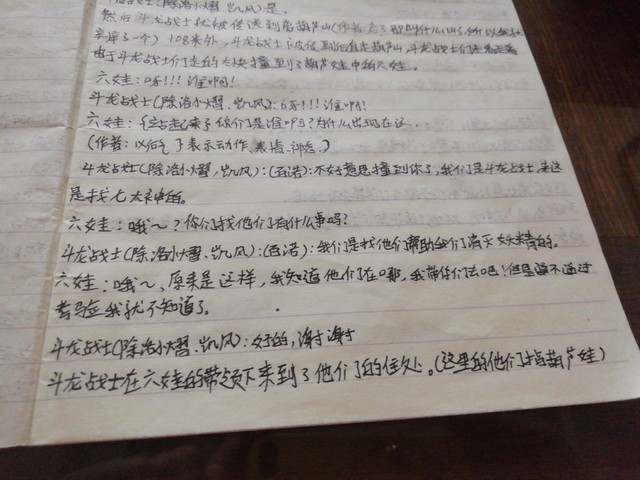 斗龙战士(除洛小熠、凯风)是。
然后斗龙战士就被传送到后葫芦山(作者:忘了那叫什么山了,所以我就
108米外,斗龙战士下皮传到后直走葫芦山,斗龙战士们走着走着
由于斗龙战士们走的太快撞到了葫芦娃中的六娃。
六娃:呀!!!谁啊!
斗龙战士(除洛小熠、凯风):呀!!!谁啊!
六娃:{站起来}你们是谁啊?为什么出现在这.
(作者:以后{}表示动作、表情、神态.)
斗龙战士(除洛小熠,凯风):(百诺):不好意思撞到你了,我们是斗龙战士,来这
是找七大衣中的。
六娃:哦~?你们找他们有什么事吗?
斗龙战士(除洛小熠、凯风):(百诺):我们是找他们帮助我们消灭妖精的。
六娃:哦~、原来是这样,我知道他们在哪,我带你们去吧!但是通不通过
考验我就不知道了。
斗龙战士(除洛小熠、凯风):好的,谢谢
斗龙战士在六娃的带领下来到了他们的住处。(这里的他们指葫芦娃)